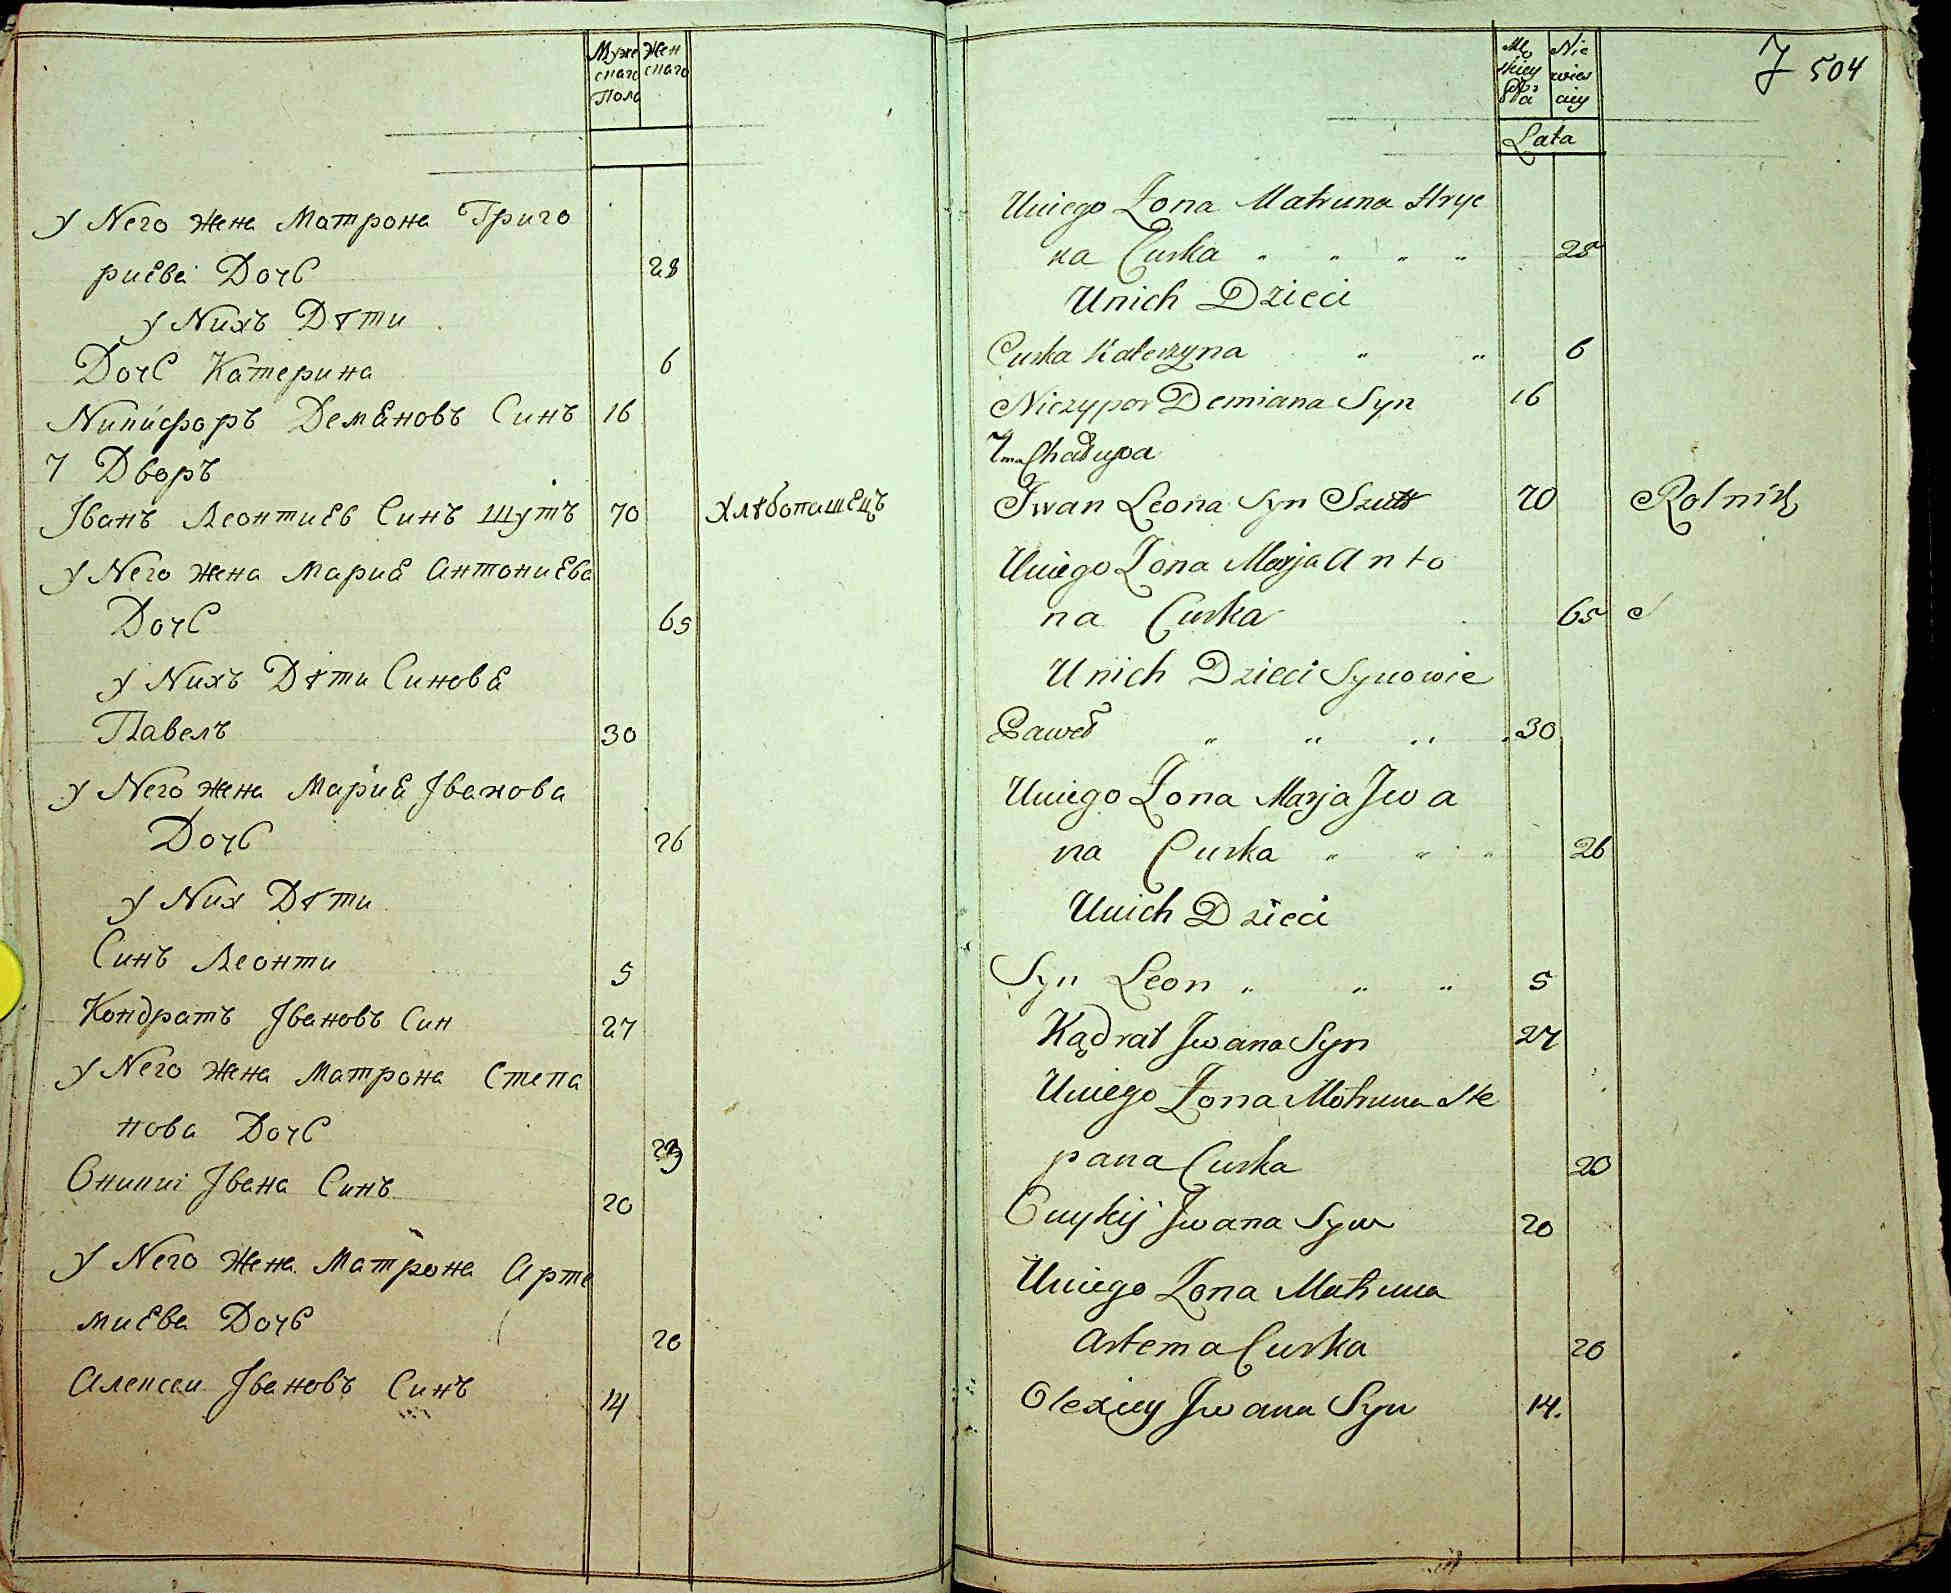 Муже Жен
скаго скаго
Пола
У Него жена Матрона Григо
риева Дочь 28
у Нихъ Дѣти
Дочь Катерина 6
Никифоръ Демяновъ Синъ 16
7 Дворъ
Іванъ Леонтиев Синъ Шутъ 70 Хлѣбопашецъ
У Него жена Мария Антониева
Дочь 65
у Нихъ Дѣти Синовя
Павелъ 30
У Него жена Мария Іванова
Дочь 26
у Них Дѣти
Синъ Леонти 5
Кондратъ Івановъ Син 27
У Него жена Матрона Степа
нова Дочь
Оникиі Івана Синъ 20
У Него жена Матрона Арте
миева Дочь 20
Алексеи Івановъ Синъ 14
7 504
Mę Nie
skiey wies
ciey
Lata
Uniego Żona Matruna Hryc
ka Curka " " " " 28
Unich Dzieci
Curka Katerzyna " " 6
Niczypor Demiana Syn 16
7ma Chałupa
Jwan Leona Syn Szutt 70 Rolnik
Uniego Żona Marja Anto
na Curka 65
Unich Dzieci Synowie
Paweł " " " " 30
Uniego Żona Marja Jwa
na Curka " " " 26
Unich Dzieci
Syn Leon " " " 5
Kądrat Jwana Syn 27
Uniego Żona Motruna Ste
pana Curka 20
Onykij Jwana Syn 20
Uniego Żona Matruna
Artema Curka 20
Olexiey Jwana Syn 14.